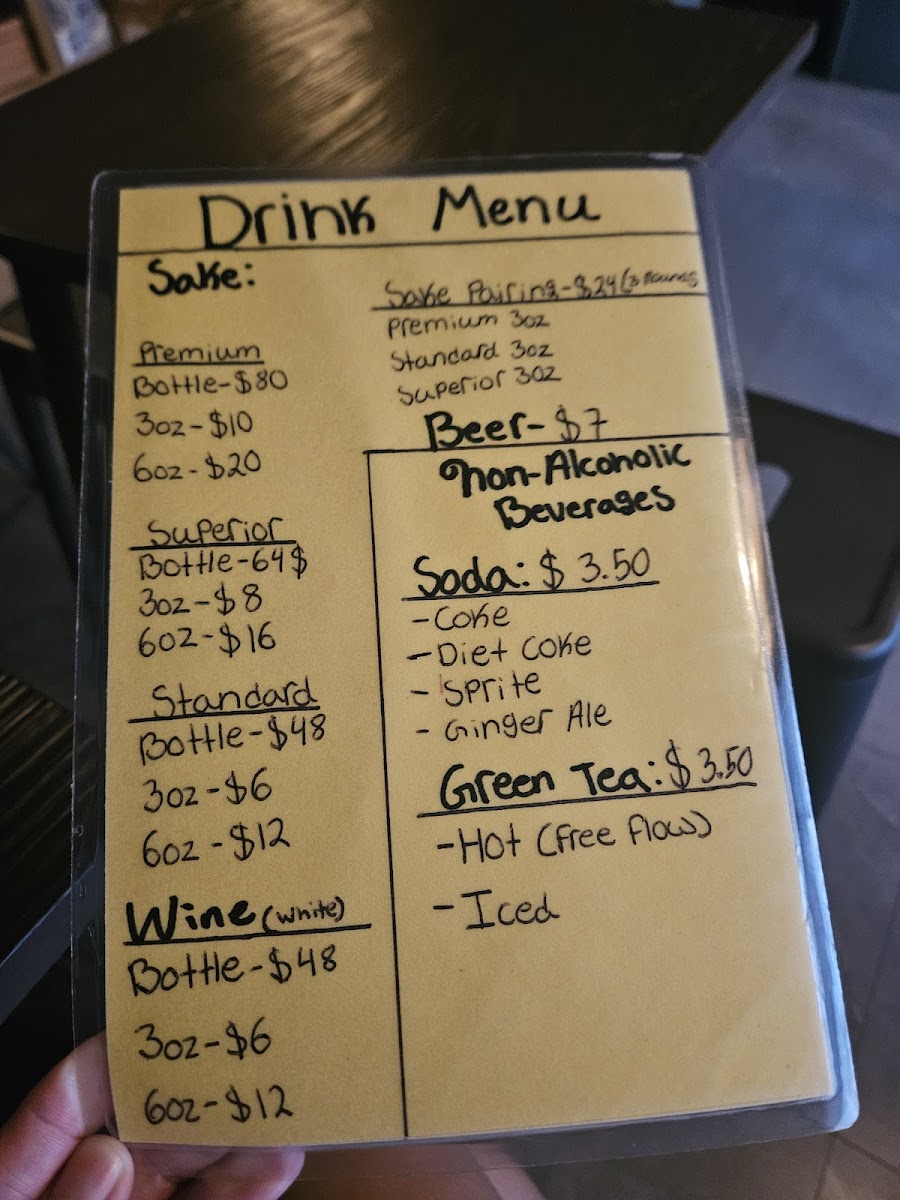 Drink Menu
Sake:
Premium
Bottle-$80
3oz-$10
6oz-$20
Superior
Bottle-64$
3oz-$8
6oz-$16
Standard
Bottle-$48
3oz-$6
6oz-$12
Wine (white)
Bottle-$48
3oz-$6
6oz-$12
Sake Pairing-$24(3 Pounds
Premium 3oz
Standard 3oz
Superior 3oz
Beer-$7
Non-Alcoholic
Beverages
Soda: $3.50
-Coke
-Diet Coke
-Sprite
-Ginger Ale
Green Tea: $3.50
-Hot (free flow)
-Iced